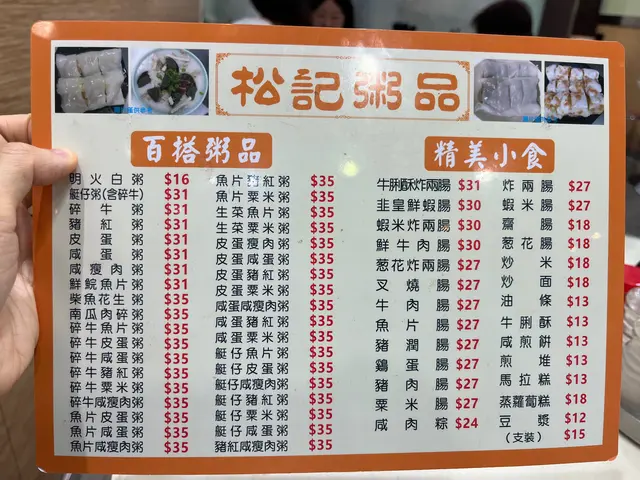 松記粥品
百搭粥品
明火白粥 $16
艇仔粥(含碎牛) $31
碎牛粥 $31
豬紅粥 $31
皮蛋粥 $31
咸蛋粥 $31
咸瘦肉粥 $31
鮮鯇魚片粥 $31
柴魚花生粥 $35
南瓜肉碎粥 $35
碎牛魚片粥 $35
碎牛皮蛋粥 $35
碎牛咸蛋粥 $35
碎牛豬紅粥 $35
碎牛粟米粥 $35
碎牛咸瘦肉粥 $35
魚片皮蛋粥 $35
魚片咸蛋粥 $35
魚片咸瘦肉粥 $35
魚片豬紅粥 $35
魚片粟米粥 $35
生菜魚片粥 $35
生菜粟米粥 $35
皮蛋瘦肉粥 $35
皮蛋咸蛋粥 $35
皮蛋豬紅粥 $35
皮蛋粟米粥 $35
咸蛋咸瘦肉粥 $35
咸蛋豬紅粥 $35
咸蛋粟米粥 $35
艇仔魚片粥 $35
艇仔皮蛋粥 $35
艇仔咸瘦肉粥 $35
艇仔豬紅粥 $35
艇仔粟米粥 $35
艇仔咸蛋粥 $35
豬紅咸瘦肉粥 $35
精美小食
牛脷酥炸兩腸 $31
韭皇鮮蝦腸 $30
蝦米炸兩腸 $30
鮮牛肉腸 $30
葱花炸兩腸 $27
叉燒腸 $27
牛肉腸 $27
魚片腸 $27
豬潤腸 $27
鷄蛋腸 $27
豬肉腸 $27
粟米腸 $27
咸肉粽 $24
炸兩腸 $27
蝦米腸 $27
齋腸 $18
葱花腸 $18
炒米 $18
炒面 $18
油條 $13
牛脷酥 $13
咸煎餅 $13
煎堆 $13
馬拉糕 $13
蒸蘿蔔糕 $18
豆漿 $12
(支裝) $15